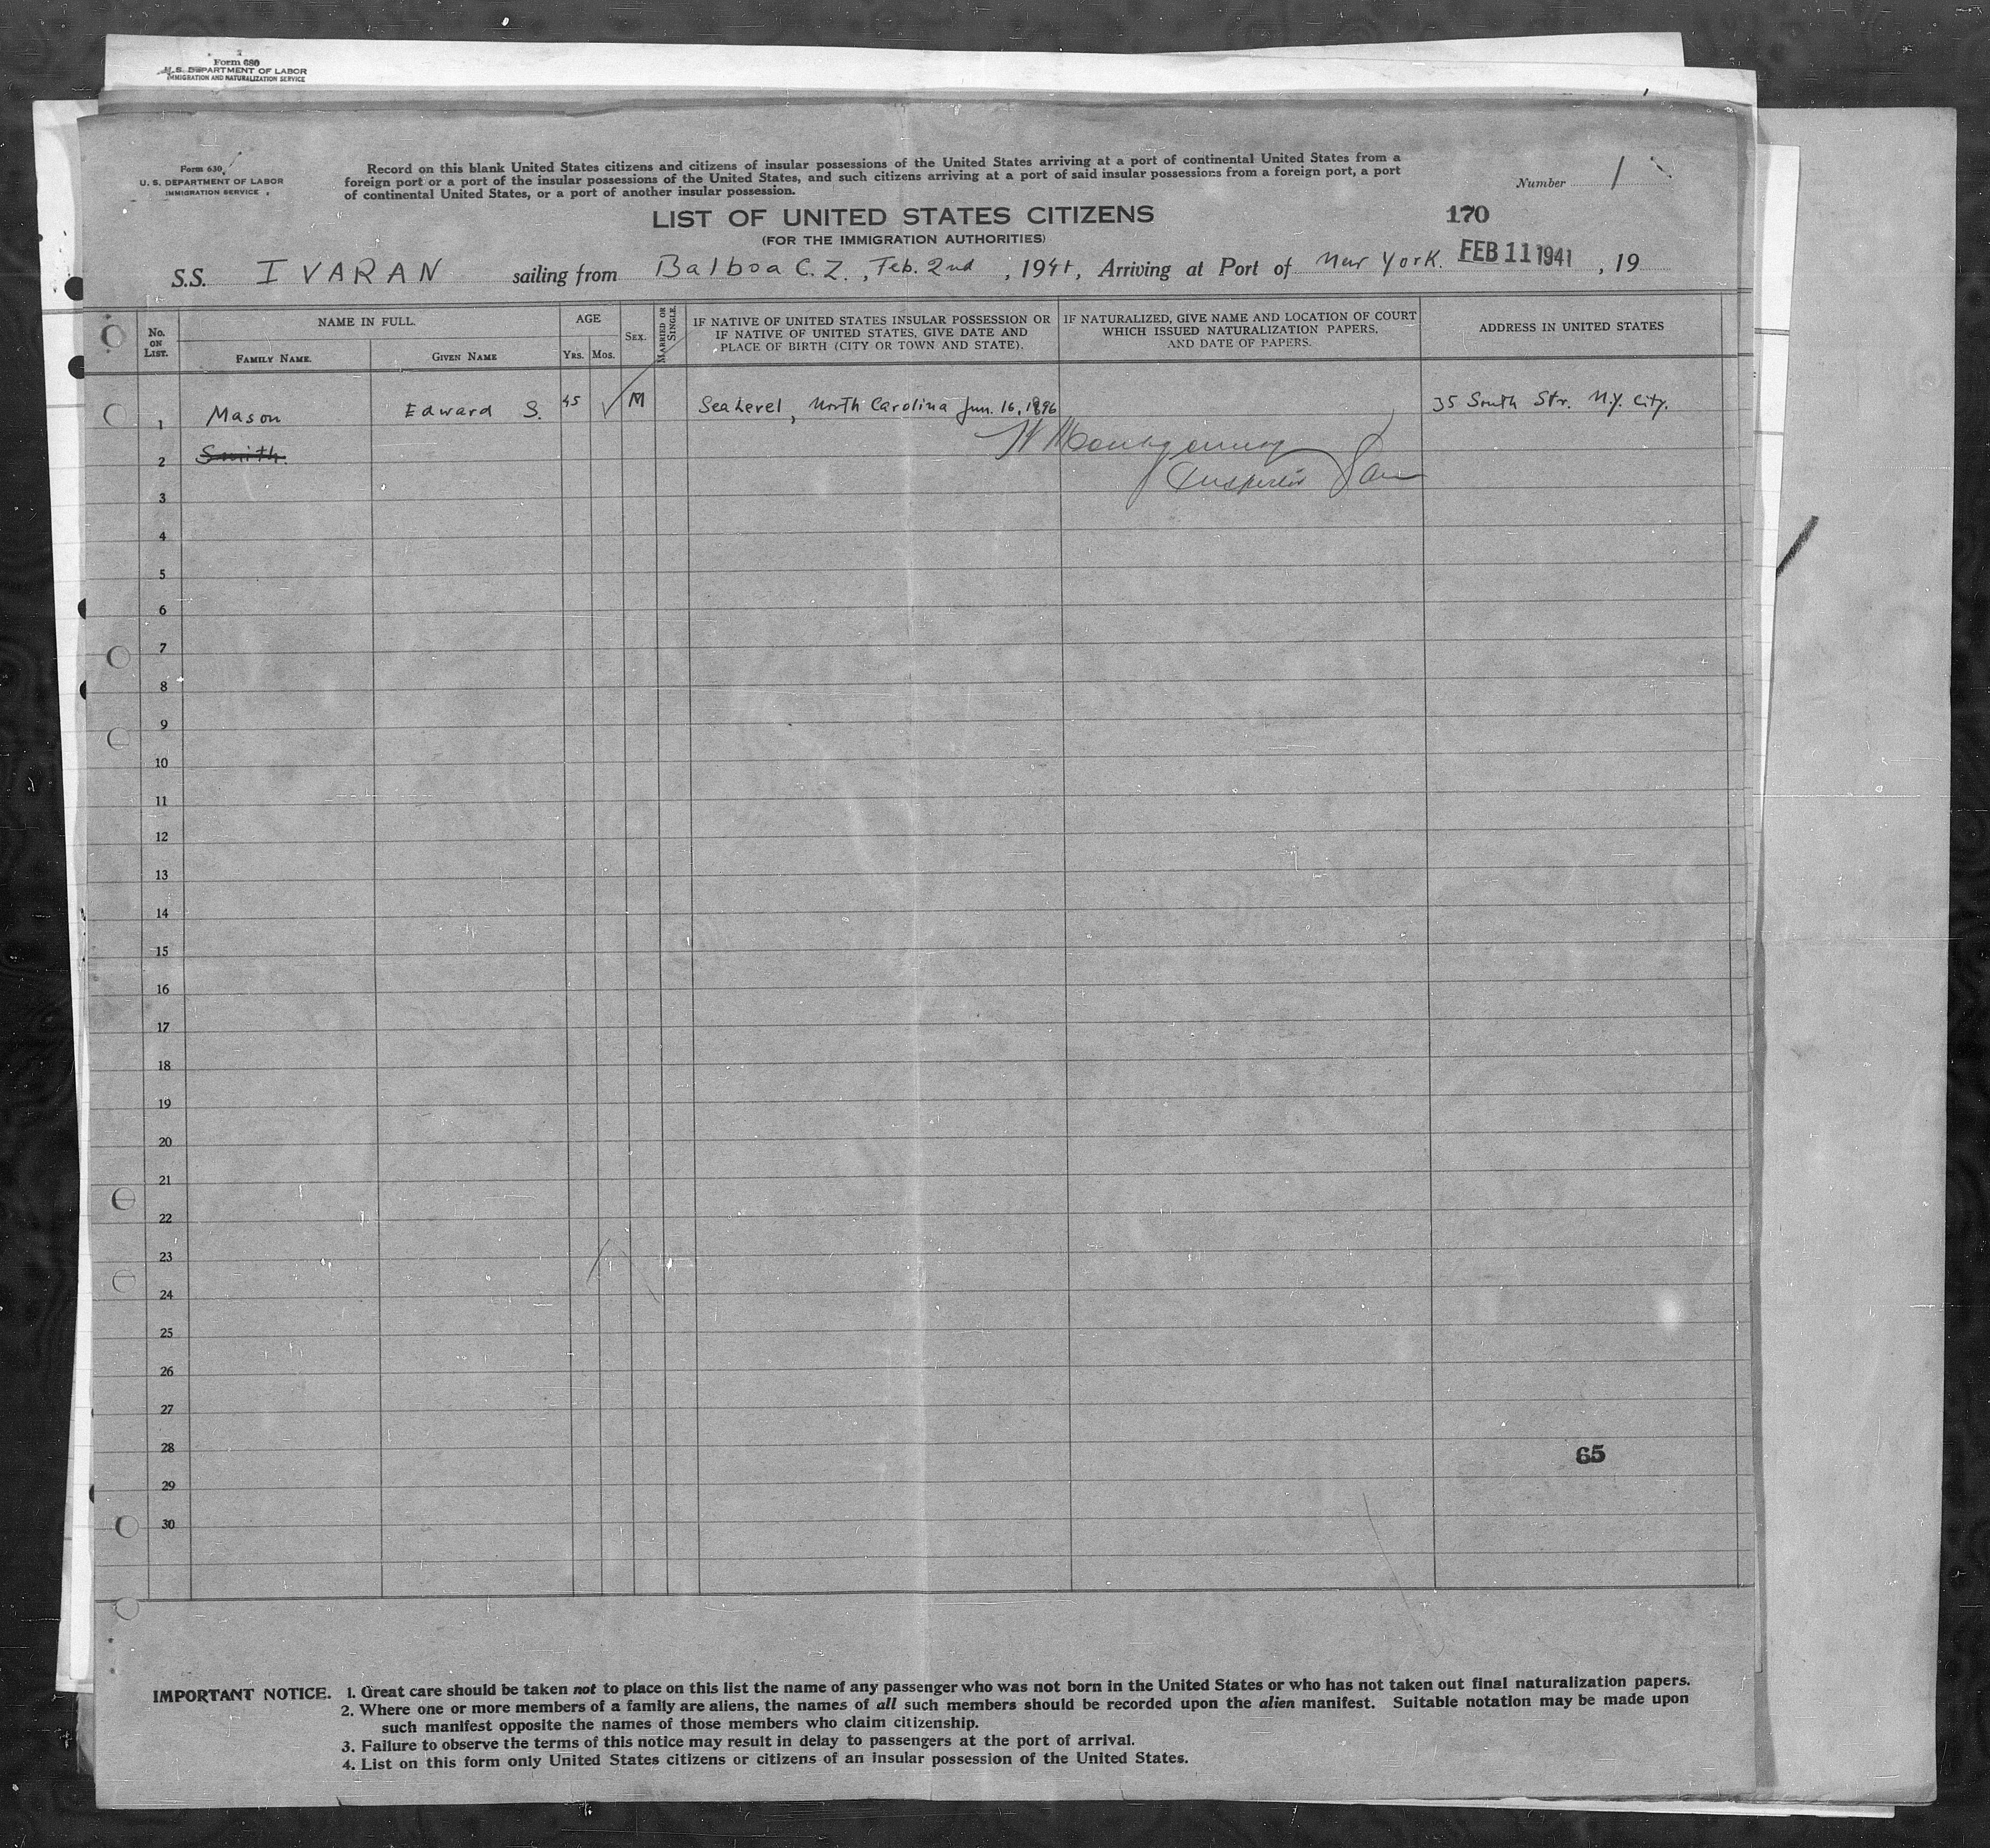 Form 680
U. S. DEPARTMENT OF LABOR
IMMIGRATION AND NATURALIZATION SERVICE
Form 630
U. S. DEPARTMENT OF LABOR
IMMIGRATION SERVICE
Record on this blank United States citizens and citizens of insular possessions of the United States arriving at a port of continental United States from a
foreign port or a port of the insular possessions of the United States, and such citizens arriving at a port of said insular possessions from a foreign port, a port
of continental United States, or a port of another insular possession.
Number 1
LIST OF UNITED STATES CITIZENS
170
(FOR THE IMMIGRATION AUTHORITIES)
S.S. IVARAN sailing from Balboa C.Z., Feb. 2nd, 1941, Arriving at Port of New York. FEB 11 1941, 19
No. ON LIST.
NAME IN FULL.
FAMILY NAME.
GIVEN NAME
AGE
YRS.
MOS.
SEX.
MARRIED OR SINGLE.
IF NATIVE OF UNITED STATES INSULAR POSSESSION OR
IF NATIVE OF UNITED STATES, GIVE DATE AND
PLACE OF BIRTH (CITY OR TOWN AND STATE).
IF NATURALIZED, GIVE NAME AND LOCATION OF COURT
WHICH ISSUED NATURALIZATION PAPERS,
AND DATE OF PAPERS.
ADDRESS IN UNITED STATES
1 Mason Edward S. 45 M Sea Level, North Carolina Jun. 16, 1896 35 South Str. N.Y. City.
2 Smith.
Montgomery
Inspector
3
4
5
6
7
8
9
10
11
12
13
14
15
16
17
18
19
20
21
22
23
24
25
26
27
28
65
29
30
IMPORTANT NOTICE. 1. Great care should be taken not to place on this list the name of any passenger who was not born in the United States or who has not taken out final naturalization papers.
2. Where one or more members of a family are aliens, the names of all such members should be recorded upon the alien manifest. Suitable notation may be made upon
such manifest opposite the names of those members who claim citizenship.
3. Failure to observe the terms of this notice may result in delay to passengers at the port of arrival.
4. List on this form only United States citizens or citizens of an insular possession of the United States.